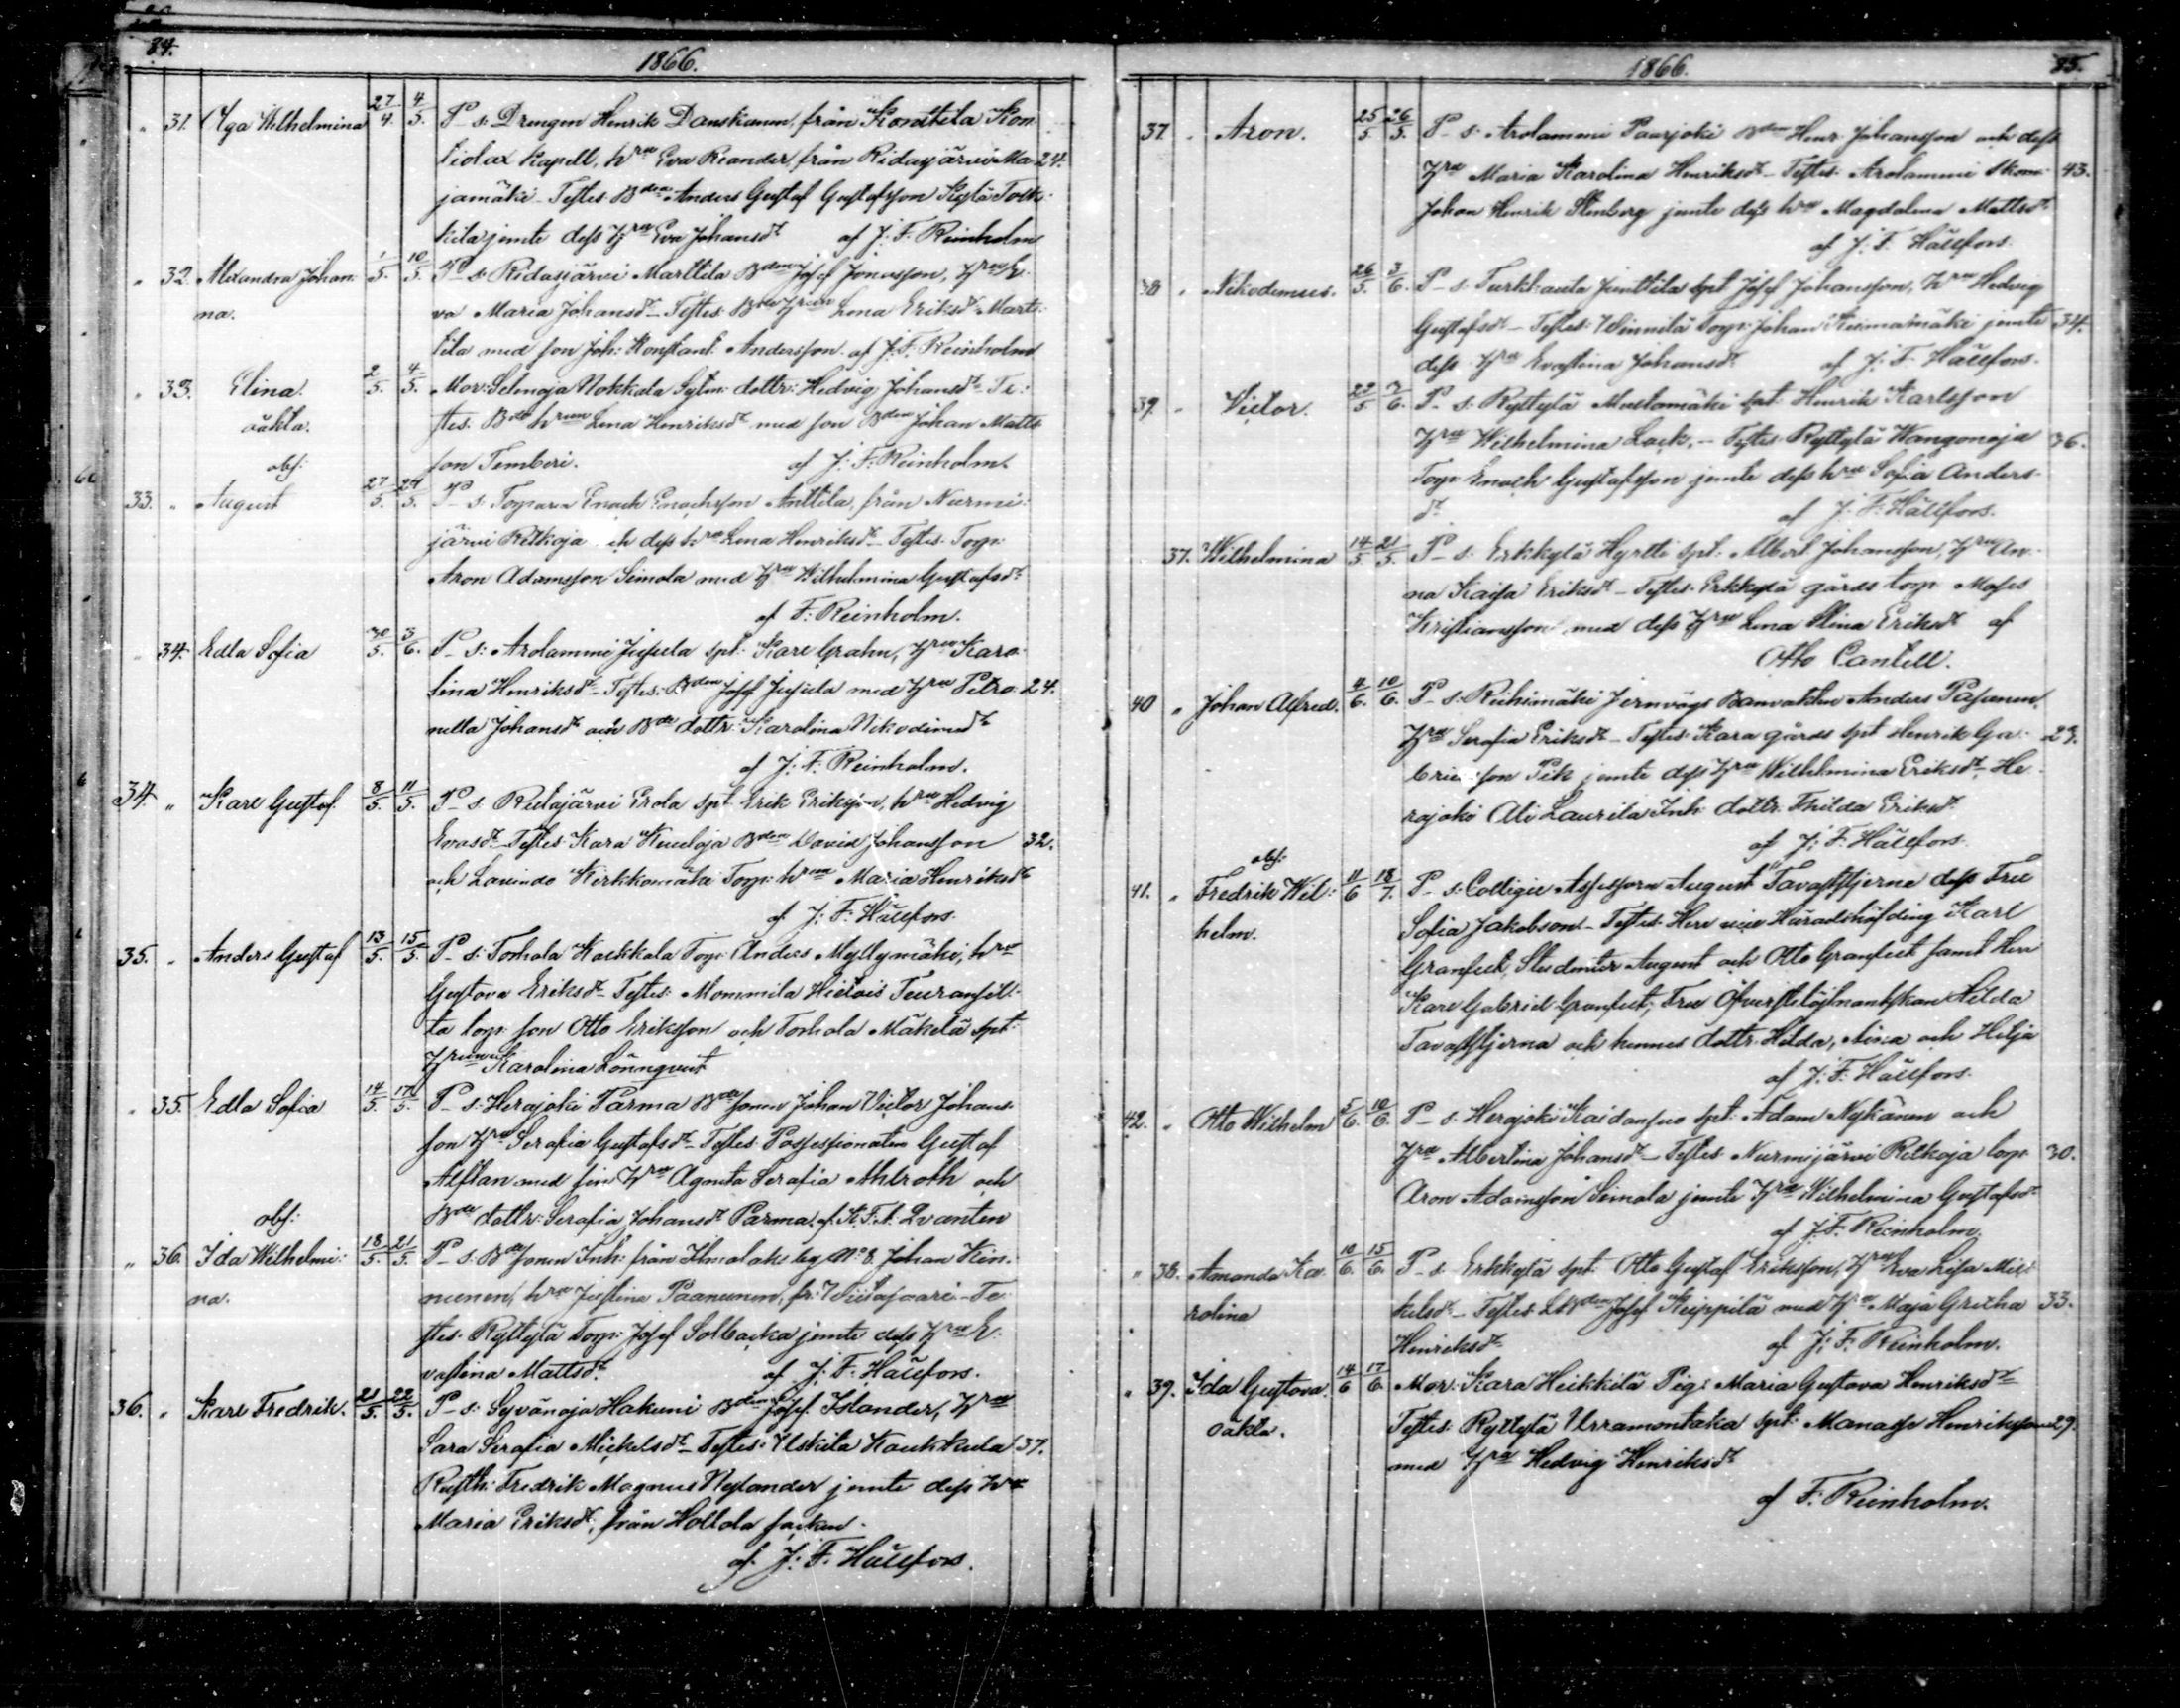 84.
1866.
" 31. Olga Wilhelmina 27/4. 4/5. P- s: Drengen Henrik Danskanen, från Kon
tiolax Kapell, hru Eva Reander, från Ridasjärvi Ma 24.
jamäki - Testes Bden Anders Gustaf Gustafsson
kila jemte dess Hru Eva Johansdr af J: F. Reinholm
" 32. Alexandra Johan: 1/5. 10/5. P- s: Ridasjärvi Marttila Bden Josef Jonasson, Hru E
na. va Maria Johansdr - Testes Bde Hrun Lena Eriksdr Mart:
tila med son Joh: Konstant. Andersson. af J: F. Reinholm
" 33. Elina. 2/5. 4/5. Mor: Selmoja Nokkala dottr: Hedvig Johansdr - Te:
oäkta. stes. Bde hrun Lena Henriksdr med son Bden Johan Matts
obs: son Temberi. af J: F. Reinholm.
33. " August 27/5. 29/5. P- s: Torparen Enoch Enochsson Anttila, från Nurmi:
järvi Retkoja och dess hru Lena Henriksdr - Testes. Torp:
Aron Adamsson Simola med Hru Wilhelmina Gustafsdr
af F: Reinholm.
" 34. Edla Sofia 30/5. 3/6. P- s: Arolammi Jusula spt: Karl Grahn, Hru Karo
lina Henriksdr - Testes: Bden Josef Jusula med Hru Petro 24.
nella Johansdr och Bde dottr: Karolina Nikodimsdr
af J: F. Reinholm.
34. " Karl Gustaf. 8/5. 11/5. P- s. Ridasjärvi Erola spt Erik Eriksson, hru Hedvig
Evasdr - Testes Kara Kuuloja Bden David Johansson 32.
och Lavinto Kirkkomäki Torp: hru Maria Henriksdr
af J: F: Hällfors.
35. " Anders Gustaf 13/5. 15/5. P- s: Torhola Kaukkala Torp: Anders Myllymäki, hru
Gustova Eriksdr Testes. Mommila Hietois
ta torp: son Otto Eriksson och Torhola Mäkelä spt:
Hrun Karolina Lönnqvist
" 35. Edla Sofia 14/5. 17/5. P- s: Herajoki Parma Bde sonen Johan Victor Johans
son Hru Serafia Gustafsdr - Testes Possessionaten Gustaf
Alftan med sin Hru Agneta Serafia Ahlroth och
obs: Bde dottr: Serafia Johansdr Parma. af K. F. A. Qvanten
" 36. Ida Wilhelmi: 18/5. 21/5. P- s: Bde sonen Inh: från Ilmolaks by No 8 Johan Kin
na. nunen, hru Justina Paanunen, fr: Wiitasaari - Te
stes. Ryttylä Torp: Josef Solbacka jemte dess Hru E:
vastina Mattsdr. af J: F. Hällfors.
36. " Karl Fredrik. 21/5. 22/5. P- s: Syvänoja Hakuni Bden Josef Islander, Hru
Sara Serafia Mickelsdr - Testes: Uskila Kaukkula 37.
Rusth: Fredrik Magnus Nylander jemte dess Hru
Maria Eriksdr, från Hollola socken.
af. J: F. Hällfors.
1866. 85.
37. " Aron. 25/5 26/5. P- s: Arolammi Paarjoki Bden Henr. Johansson och dess
Hru Maria Karolina Henriksdr - Testes. Arolammi Skom: 43.
Johan Henrik Stenberg jemte dess hru Magdalena Mattsdr
af J: F. Hällfors.
38 " Nikodemus. 26/5. 3/6. P- s: Turkhauta Junttila spt Josef Johansson, Hru Hedvig
Gustafsdr - Testes: Winnilä Torp: Johan jemte 34.
dess Hru Evastina Johansdr af J: F. Hällfors.
39. " Victor. 22/5 7/6. P- s: Ryttylä Mustamäki spt: Henrik Karlsson
Hru Wilhelmina Lock, - Testes Ryttylä Wangonoja 36.
Torp: Enoch Gustafsson jemte dess hru Sofia Anders
dr. af J: F: Hällfors.
37. Wilhelmina 14/5 21/5. P- s. Erkkylä Hyrtti spt. Albert Johansson, Hru An
na Kaisa Eriksdr - Testes. Erkkylä gårds torp: Moses
Kristiansson med dess Hru Lena Stina Eriksdr af
Otto Cantell.
40 " Johan Alfred. 4/6. 10/6. P- s. Riihimäki Jernvägs Banvakten Anders Pasanen,
Hru Serafia Eriksdr - Testes: Kara gårds spt Henrik Ga: 23.
brielsson Pik jemte dess Hru Wilhelmina Eriksdr, He
rajoki Ali Laurila Inh: dottr. Thilda Eriksdr
af J: F: Hällfors.
obs:
41. " Fredrik Wil: 11/6 18/7. P- s: Collegie Assessoren August Tavaststjerna dess Fru
helm. Sofia Jakobson. - Testes. Herr vice Häradshöfding Karl
Granfelt, Studenter August och Otto Granfelt samt Herr
Karl Gabriel Granfelt, Fru Öfverstelöjtnantskan Hilda
Tavaststjerna och hennes dottr. Hilda, Aina och Hilja
af J: F. Hällfors.
42. " Otto Wilhelm 5/6. 10/6. P- s: Herajoki Kaidansuo spt: Adam Nykänen och
Hru Albertina Johansdr - Testes Nurmijärvi Retkoja torp: 30.
Aron Adamsson Simola jemte Hru Wilhelmina Gustafsdr
af J: F. Reinholm.
" 38. Amanda Ka: 10/6. 15/6. P- s. Erkkylä spt. Otto Gustaf Eriksson, Hru Eva Lisa Mic
rolina kelsdr - Testes. Bden Josef Keippilä med Hru Maja Gretha 33.
Henriksdr. af J: F. Reinholm.
" 39. Ida Gustova. 14/6 17/6. Mor: Kara Heikkilä Pig: Maria Gustava Henriksdr
oäkta. Testes: Ryttylä Urramontaka spt. Manasse Henriksson 29.
med Hru Hedvig Henriksdr
af F. Reinholm.